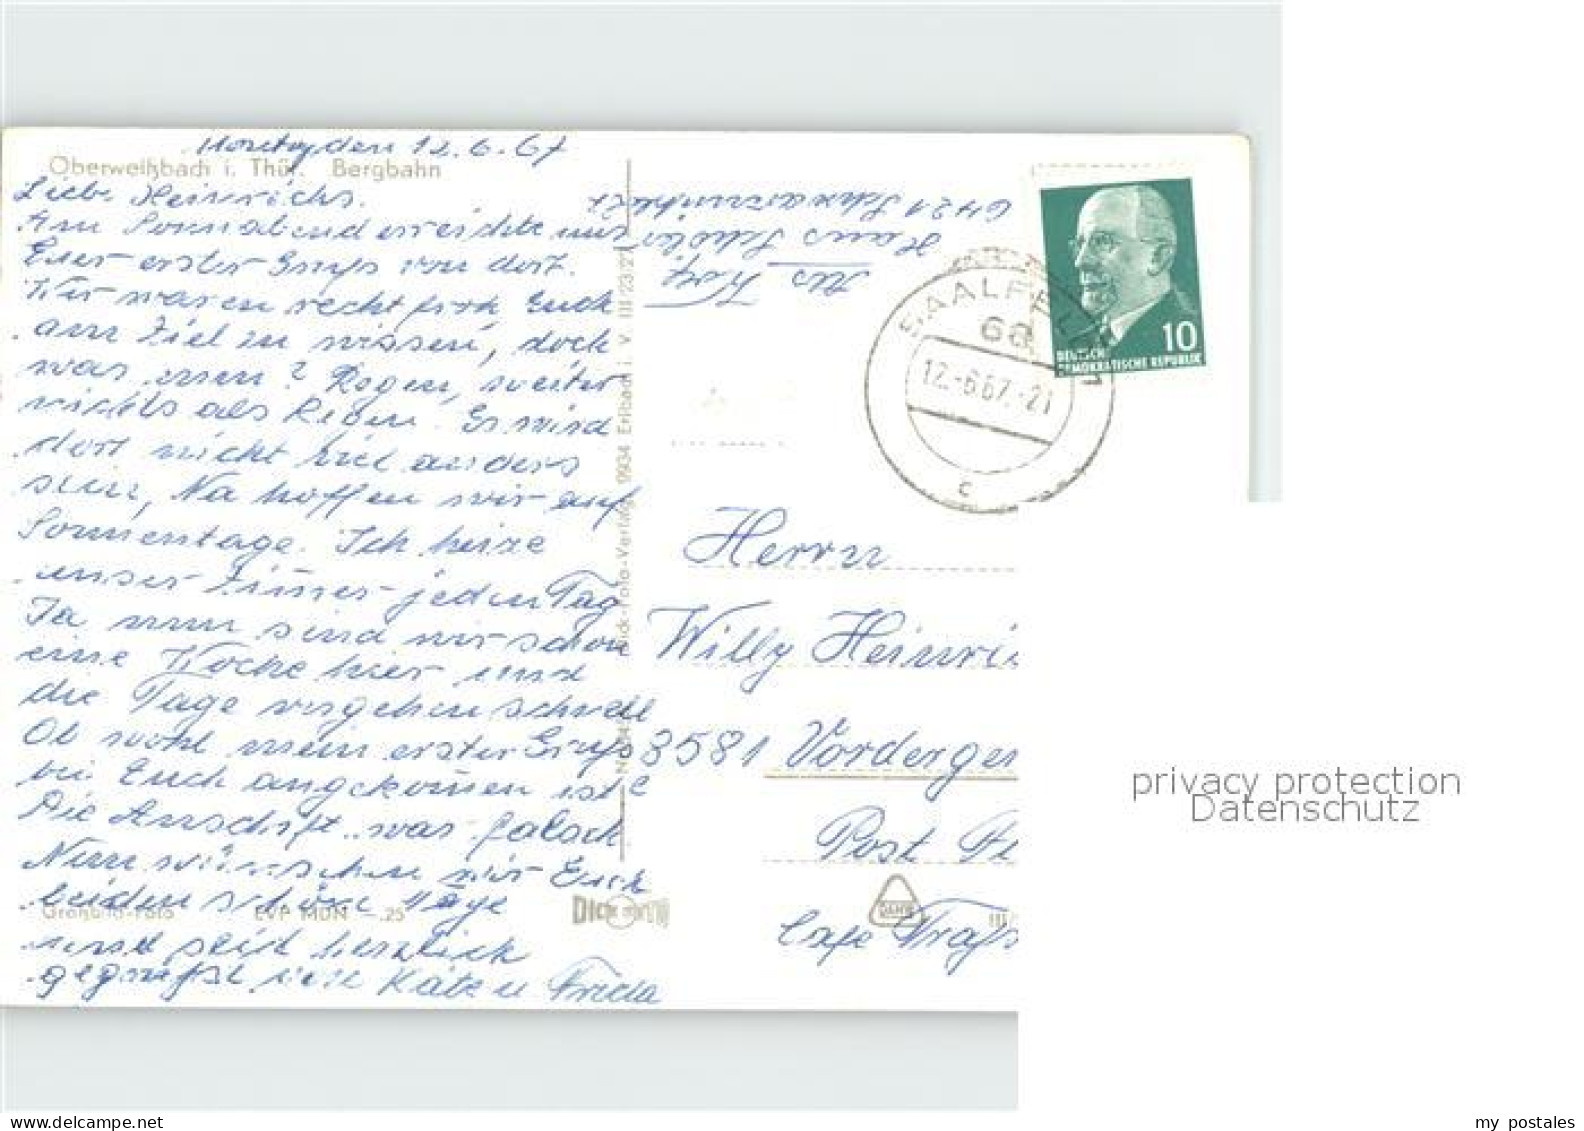 Montag den 12.6.67
Oberweißbach i. Thür. Bergbahn
Liebe Heinrichs.
Am Sonnabend erreichte uns
Euer erster Gruß von dort.
Wir waren recht froh Euch
am Ziel zu wissen, doch
was nun? Regen, weiter
nichts als Regen. Es wird
dort nicht viel anders
sein, Na hoffen wir auf
Sonnentage. Ich heize
unser Zimmer jeden Tag
Ja nun sind wir schon
eine Woche hier und
die Tage vergehen schnell
Ob wohl mein erster Gruß
bei Euch angekom̄en ist
Die Anschrift war falsch
Nun wünschen wir Euch
beiden schöne Tage
und seid herzlich
gegrüßt von Käte u Frieda
Großbild-Foto EVP MDN -.25
DICK FOTO
Dick-Foto-Verlag, 9934 Erlbach i. V. III/23/27
Hans Scholz
SAALFELD
68
12.-6.67.-21
c
10
DEUTSCHE
DEMOKRATISCHE REPUBLIK
Herrn
Willy Heinri
8581 Vorderger
Post
Cafe
privacy protection
Datenschutz
my postales